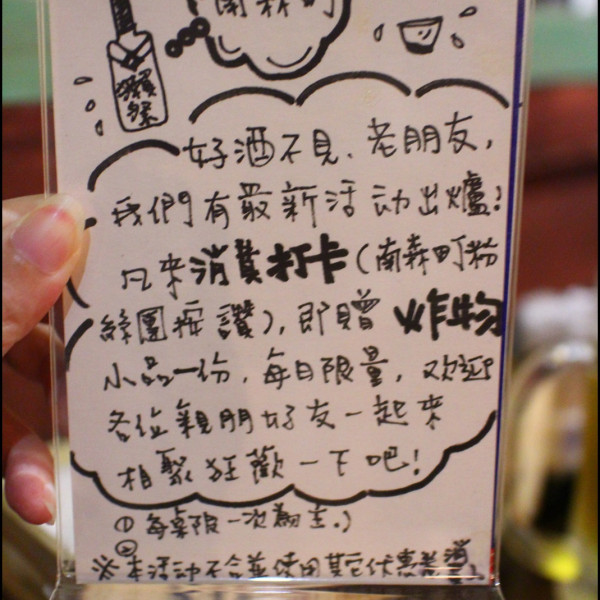 南森町
獺祭
好酒不見、老朋友,
我們有最新活动出爐!
凡來消費打卡(南森町粉
絲團按讚),即贈炸物
小品一份,每日限量,欢迎
各位親朋好友一起來
相聚狂歡一下吧!
① 每桌限一次為主。)
②
※本活动不合並使用其它优惠